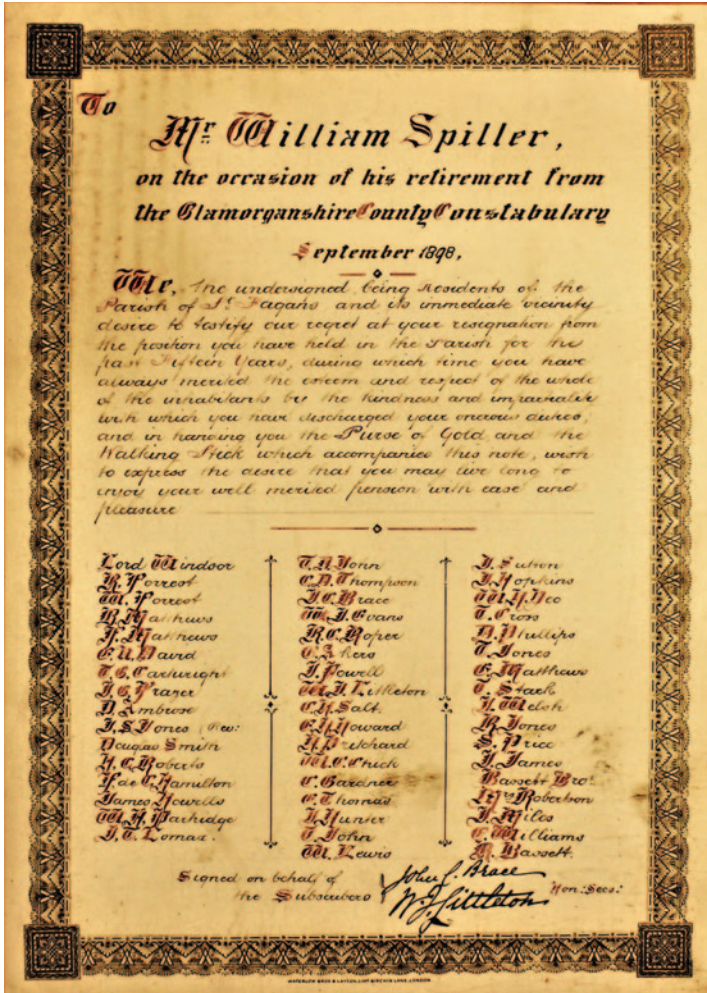 To
Mr. William Spiller,
on the occasion of his retirement from
the Glamorganshire County Constabulary
September 1898,
We, the undersigned being residents of the
Parish of St Fagans and its immediate vicinity
desire to testify our regret at your resignation from
the position you have held in the Parish for the
past Fifteen Years, during which time you have
always merited the esteem and respect of the whole
of the inhabitants by the kindness and impartiality
with which you have discharged your onerous duties,
and in handing you the Purse of Gold and the
Walking Stick which accompanies this note, wish
to express the desire that you may live long to
enjoy your well merited pension with ease and
pleasure
Lord Windsor
R. Forrest
W. Forrest
R. Matthews
H. Matthews
E. U. David
T. G. Cartwright
J. G. Frazer
D. Ambrose
J. S. Jones (Rev:
Douglas Smith
H. C. Roberts
F. de C. Hamilton
James Howells
W. H. Partridge
J. T. Lomax.
T. A. Yonn
C. D. Thompson
J. C. Brace
W. J. Evans
R. C. Roper
C. Akers
J. Powell
W. J. Littleton
C. H. Salt.
E. H. Howard
H. Pritchard
W. C. Chick
C. Gardner
C. Thomas
J. Hunter
T. John
W. Lewis
J. Sutton
J. Hopkins
W. H. Neo
T. Cross
D. Phillips
T. Jones
E. Matthews
T. Stack
H. Welsh
R. Jones
S. Price
J. James
Bassett Bros.
Mrs Robertson
J. Miles
C. Williams
Bassett.
Signed on behalf of
the Subscribers
John C. Brace
W. J. Littleton
Hon: Secs:
WATERLOW BROS & LAYTON, LIMD BIRCHIN LANE, LONDON